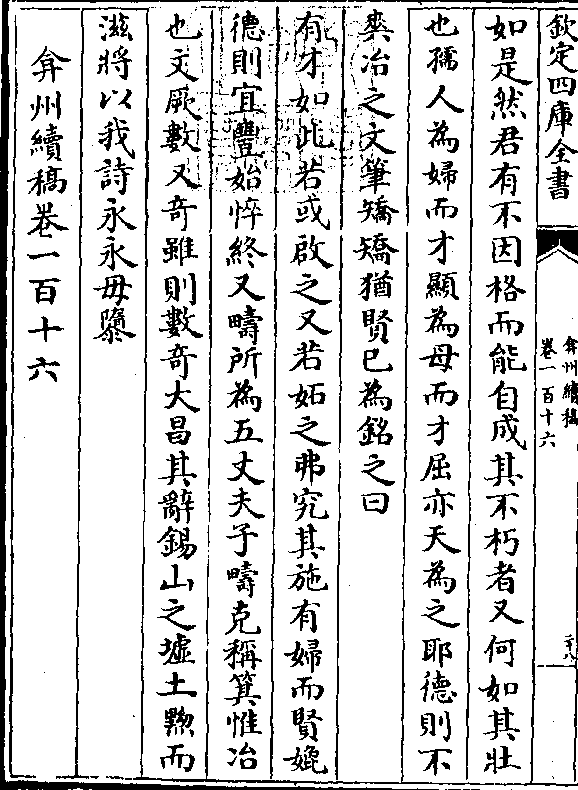 欽定四庫全書
弇州續稿
卷一百十六
二十八
如是然君有不因格而能自成其不朽者又何如其壯
也孺人為婦而才顯為母而才屈亦天為之耶德則不
爽冶之文筆矯矯猶賢已為銘之曰
有才如此若或啟之又若妬之弗究其施有婦而賢媲
德則宜豐始悴終又疇所為五丈夫子疇克稱箕惟冶
也文厥數又奇雖則數奇大昌其辭錫山之墟土黝而
滋將以我詩永永毋隳
弇州續稿卷一百十六